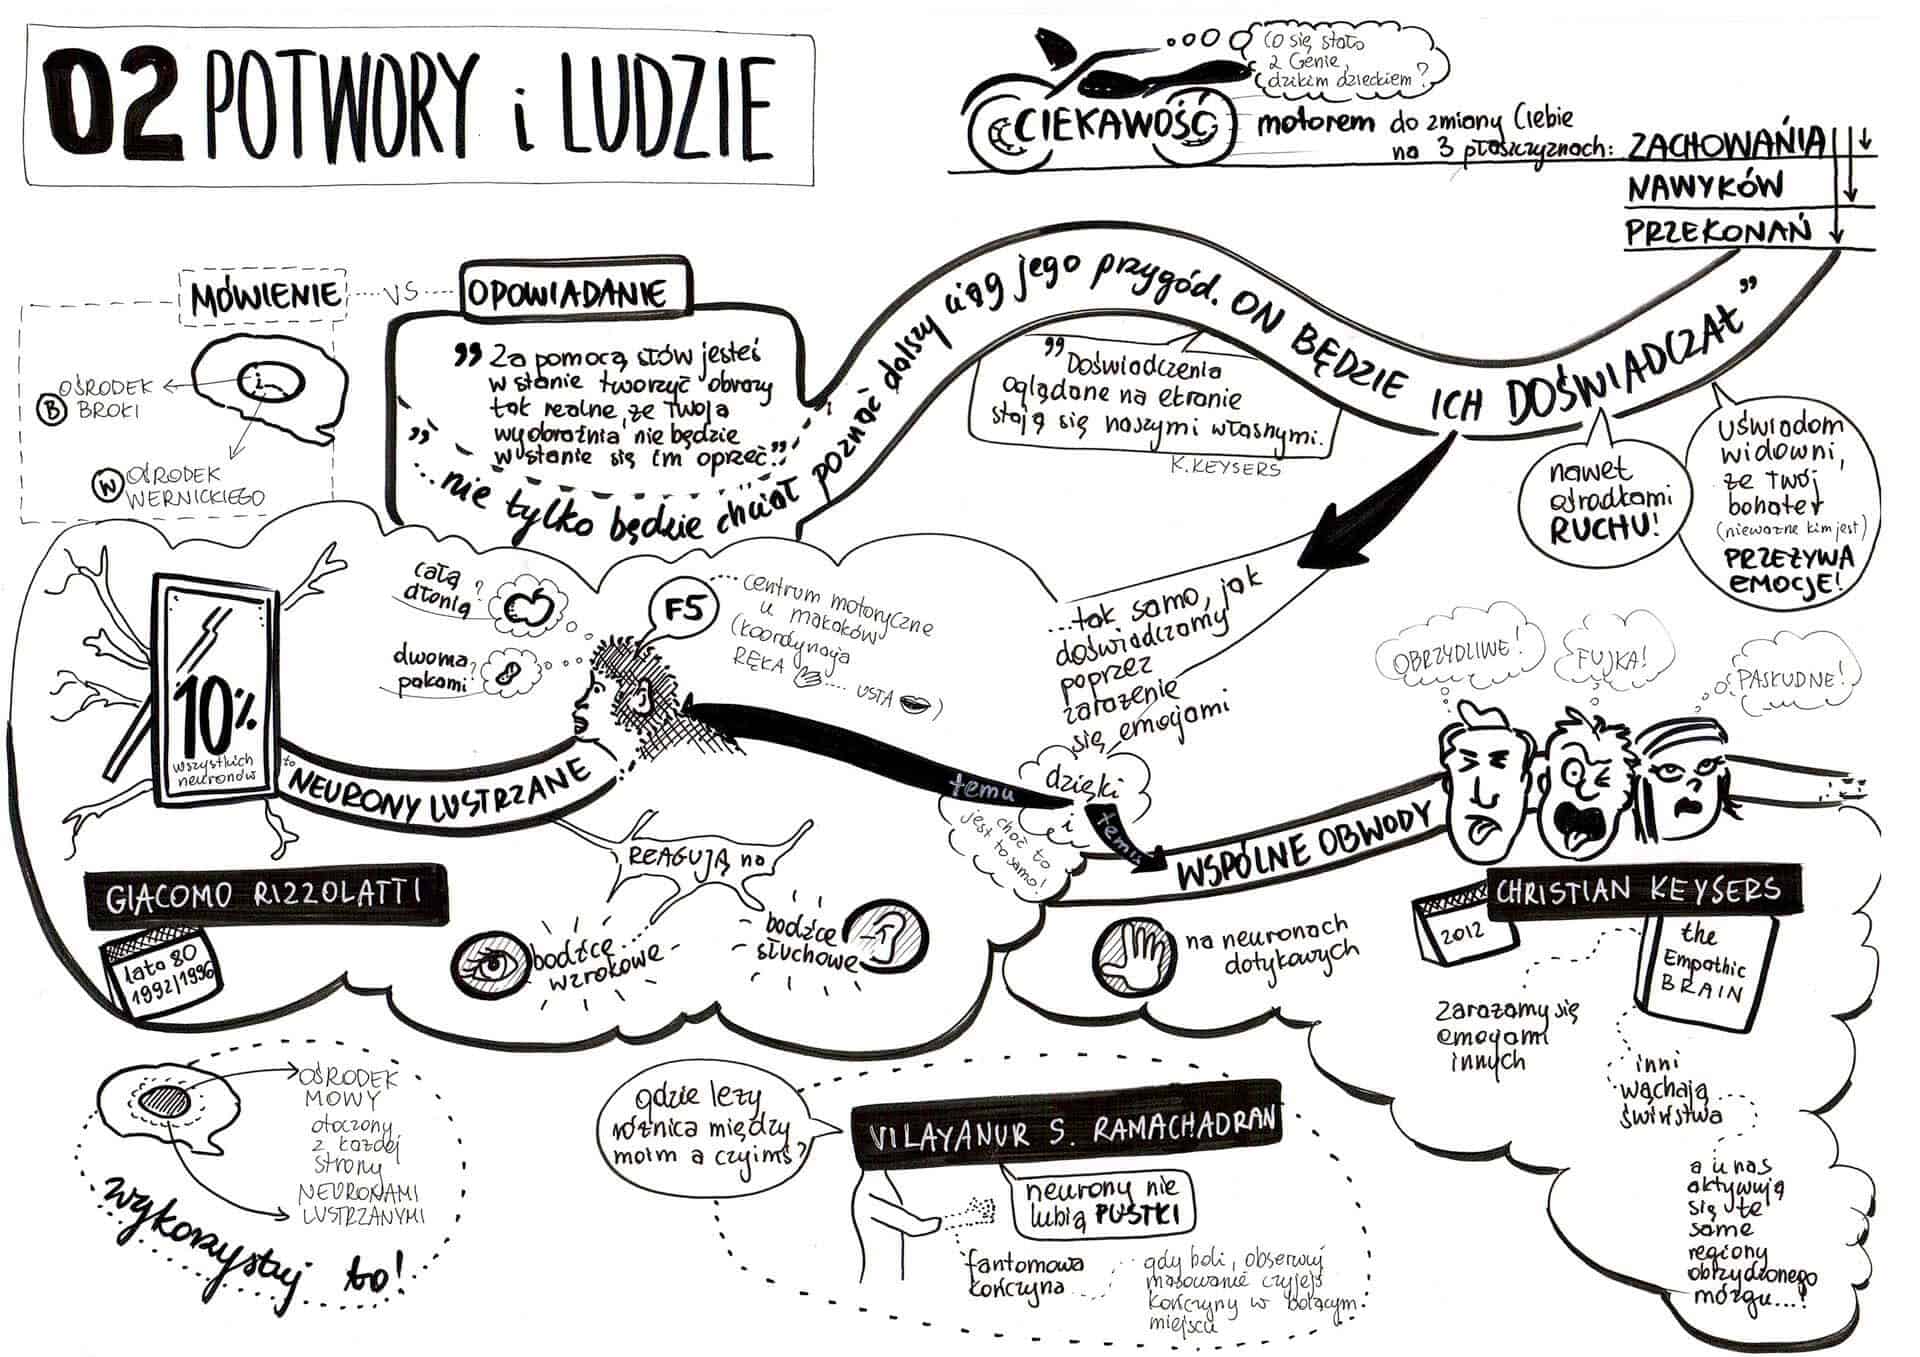 02 POTWORY i LUDZIE
Co się stało
z Genie,
dzikim dzieckiem?
CIEKAWOŚĆ motorem do zmiany Ciebie
na 3 płaszczyznach: ZACHOWAŃIA
NAWYKÓW
PRZEKONAŃ
MÓWIENIE VS OPOWIADANIE
B OŚRODEK
BROKI
W OŚRODEK
WERNICKIEGO
"Za pomocą słów jesteś
w stanie tworzyć obrazy
tak realne, że Twoja
wyobraźnia nie będzie
w stanie się im oprzeć."
"...nie tylko będzie chciał poznać dalszy ciąg jego przygód. ON BĘDZIE ICH DOŚWIADCZAŁ"
"Doświadczenia
oglądane na ekranie
stają się naszymi własnymi.
K.KEYSERS
nawet
ośrodkami
RUCHU!
Uświadom
widowni,
że Twój
bohater
(nieważne kim jest)
PRZEŻYWA
EMOCJE!
...tak samo, jak
doświadczamy
poprzez
zarażenie
się emocjami
całą
dłonią?
dwoma
palcami?
F5
centrum motoryczne
u makaków
(koordynacja
RĘKA .... USTA)
10%
wszystkich
neuronów
to NEURONY LUSTRZANE
dzięki
temu
i
temu
choć to
jest to samo!
WSPÓLNE OBWODY
OBRZYDLIWE!
FUJKA!
PASKUDNE!
REAGUJĄ na
GIACOMO RIZZOLATTI
lata 80
1992/1996
bodźce
wzrokowe
bodźce
słuchowe
na neuronach
dotykowych
CHRISTIAN KEYSERS
2012
the
Empathic
BRAIN
zarażamy się
emocjami
innych
inni
wąchają
świństwa
a u nas
aktywują
się te
same
regiony
obrzydzonego
mózgu...!
OŚRODEK
MOWY
otoczony
z każdej
strony
NEURONAMI
LUSTRZANYMI
wykorzystaj to!
gdzie leży
różnica między
moim a czyimś?
VILAYANUR S. RAMACHADRAN
neurony nie
lubią PUSTKI
fantomowa
kończyna
gdy boli, obserwuj
masowanie czyjejś
kończyny w bolącym
miejscu